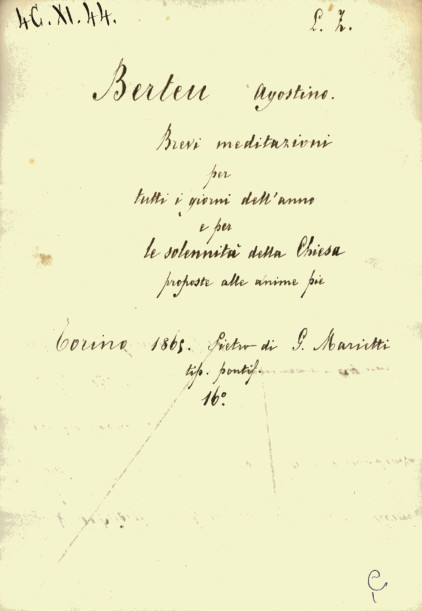 4C. XI. 44. L. Z.
Berteu Agostino.
Brevi meditazioni
per
tutti i giorni dell'anno
e per
le solennità della Chiesa
proposte alle anime pie
Torino 1865. Pietro di G. Marietti
tip. pontif.
16º